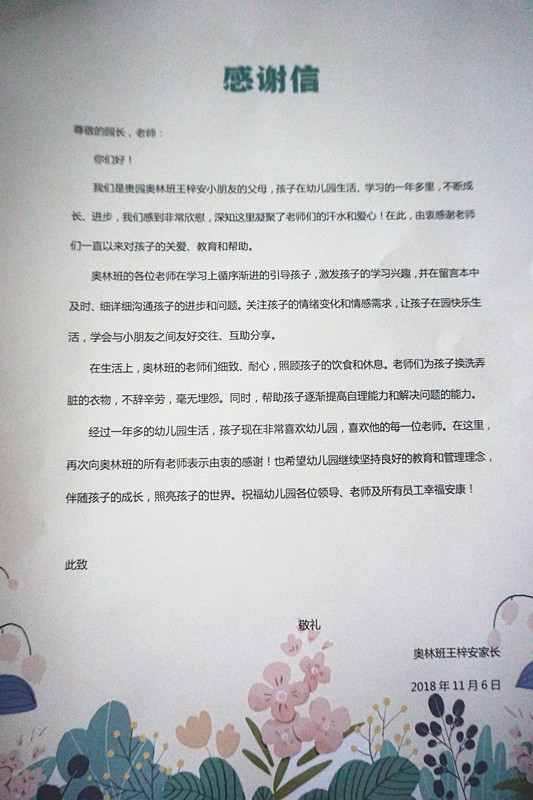 感谢信
尊敬的园长，老师：
你们好！
我们是贵园奥林班王梓安小朋友的父母，孩子在幼儿园生活、学习的一年多里，不断成
长、进步，我们感到非常欣慰，深知这里凝聚了老师们的汗水和爱心！在此，由衷感谢老师
们一直以来对孩子的关爱、教育和帮助。
奥林班的各位老师在学习上循序渐进的引导孩子，激发孩子的学习兴趣，并在留言本中
及时、细详细沟通孩子的进步和问题。关注孩子的情绪变化和情感需求，让孩子在园快乐生
活，学会与小朋友之间友好交往、互助分享。
在生活上，奥林班的老师们细致、耐心，照顾孩子的饮食和休息。老师们为孩子换洗弄
脏的衣物，不辞辛劳，毫无埋怨。同时，帮助孩子逐渐提高自理能力和解决问题的能力。
经过一年多的幼儿园生活，孩子现在非常喜欢幼儿园，喜欢他的每一位老师。在这里，
再次向奥林班的所有老师表示由衷的感谢！也希望幼儿园继续坚持良好的教育和管理理念，
伴随孩子的成长，照亮孩子的世界。祝福幼儿园各位领导、老师及所有员工幸福安康！
此致
敬礼
奥林班王梓安家长
2018 年 11 月 6 日